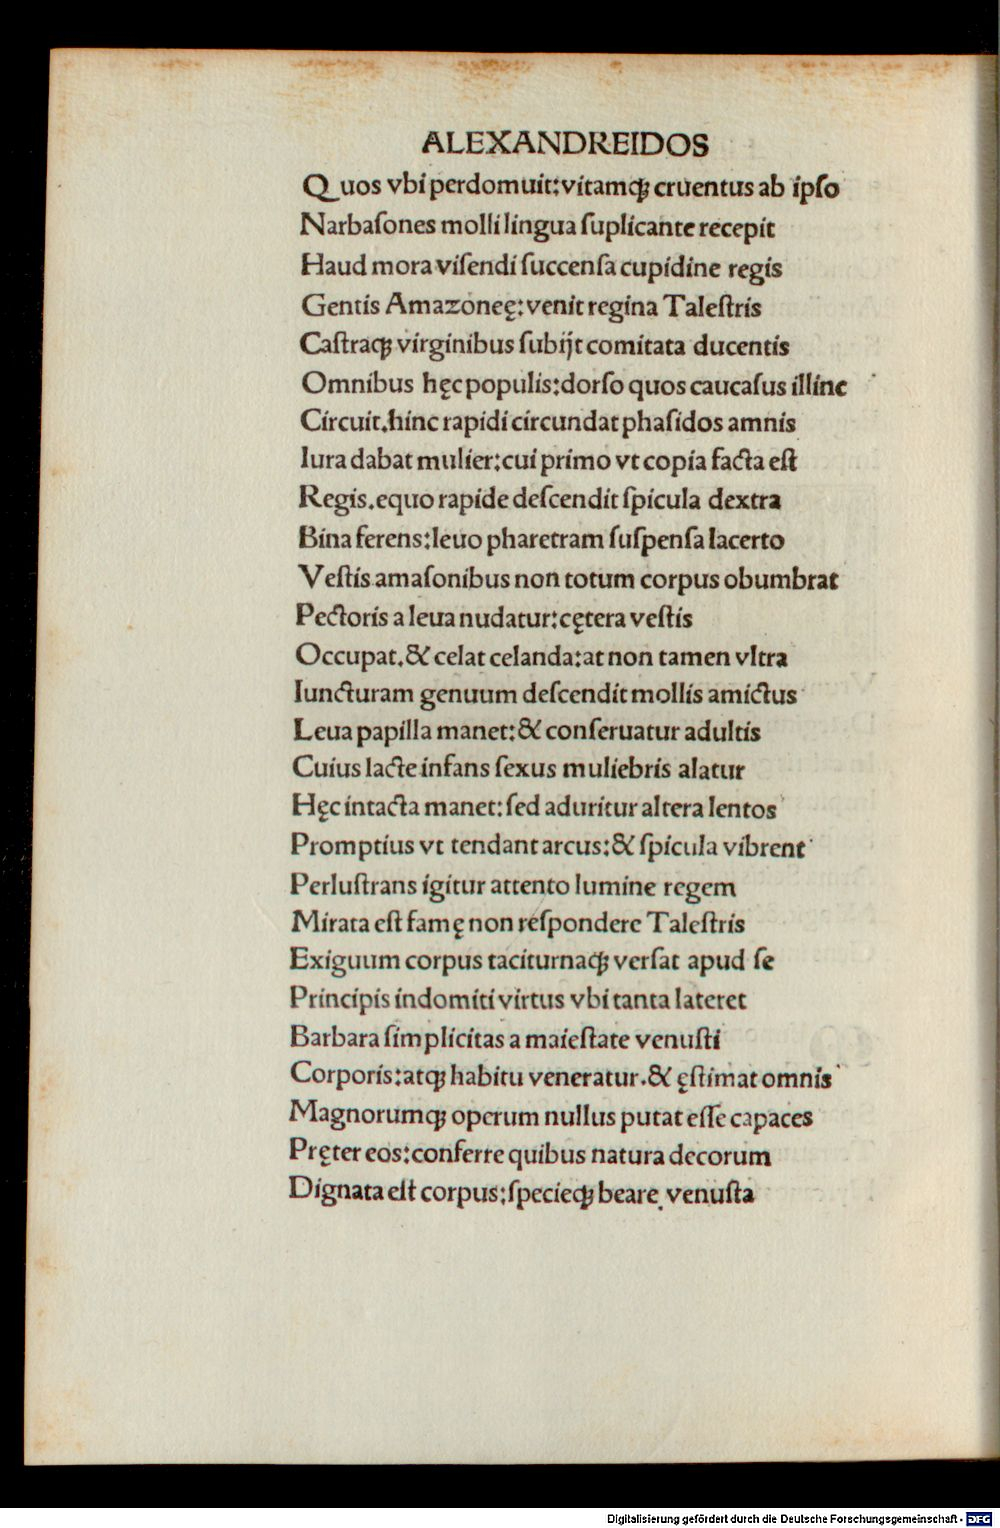 ALEXANDREIDOS
Quos vbi perdomuit:vitamqꝫ cruentus ab ipso
Narbaſones molli lingua ſuplicante recepit
Haud mora viſendi ſuccenſa cupidine regis
Gentis Amazoneę:venit regina Taleſtris
Caſtraqꝫ virginibus ſubijt comitata ducentis
Omnibus hęc populis:dorſo quos caucaſus illinc
Circuit.hinc rapidi circundat phaſidos amnis
Iura dabat mulier:cui primo vt copia facta eſt
Regis.equo rapide deſcendit ſpicula dextra
Bina ferens:leuo pharetram ſuſpenſa lacerto
Veſtis amaſonibus non totum corpus obumbrat
Pectoris a leua nudatur:cętera veſtis
Occupat.& celat celanda:at non tamen vltra
Iuncturam genuum deſcendit mollis amictus
Leua papilla manet:& conſeruatur adultis
Cuius lacte infans ſexus muliebris alatur
Hęc intacta manet:ſed aduritur altera lentos
Promptius vt tendant arcus:& ſpicula vibrent
Perluſtrans igitur attento lumine regem
Mirata eſt famę non reſpondere Taleſtris
Exiguum corpus taciturnaqꝫ verſat apud ſe
Principis indomiti virtus vbi tanta lateret
Barbara ſimplicitas a maieſtate venuſti
Corporis:atqꝫ habitu veneratur.& ęſtimat omnis
Magnorumqꝫ operum nullus putat eſſe capaces
Pręter eos:conferre quibus natura decorum
Dignata eſt corpus:ſpecieqꝫ beare venuſta
Digitalisierung gefördert durch die Deutsche Forschungsgemeinschaft - DFG